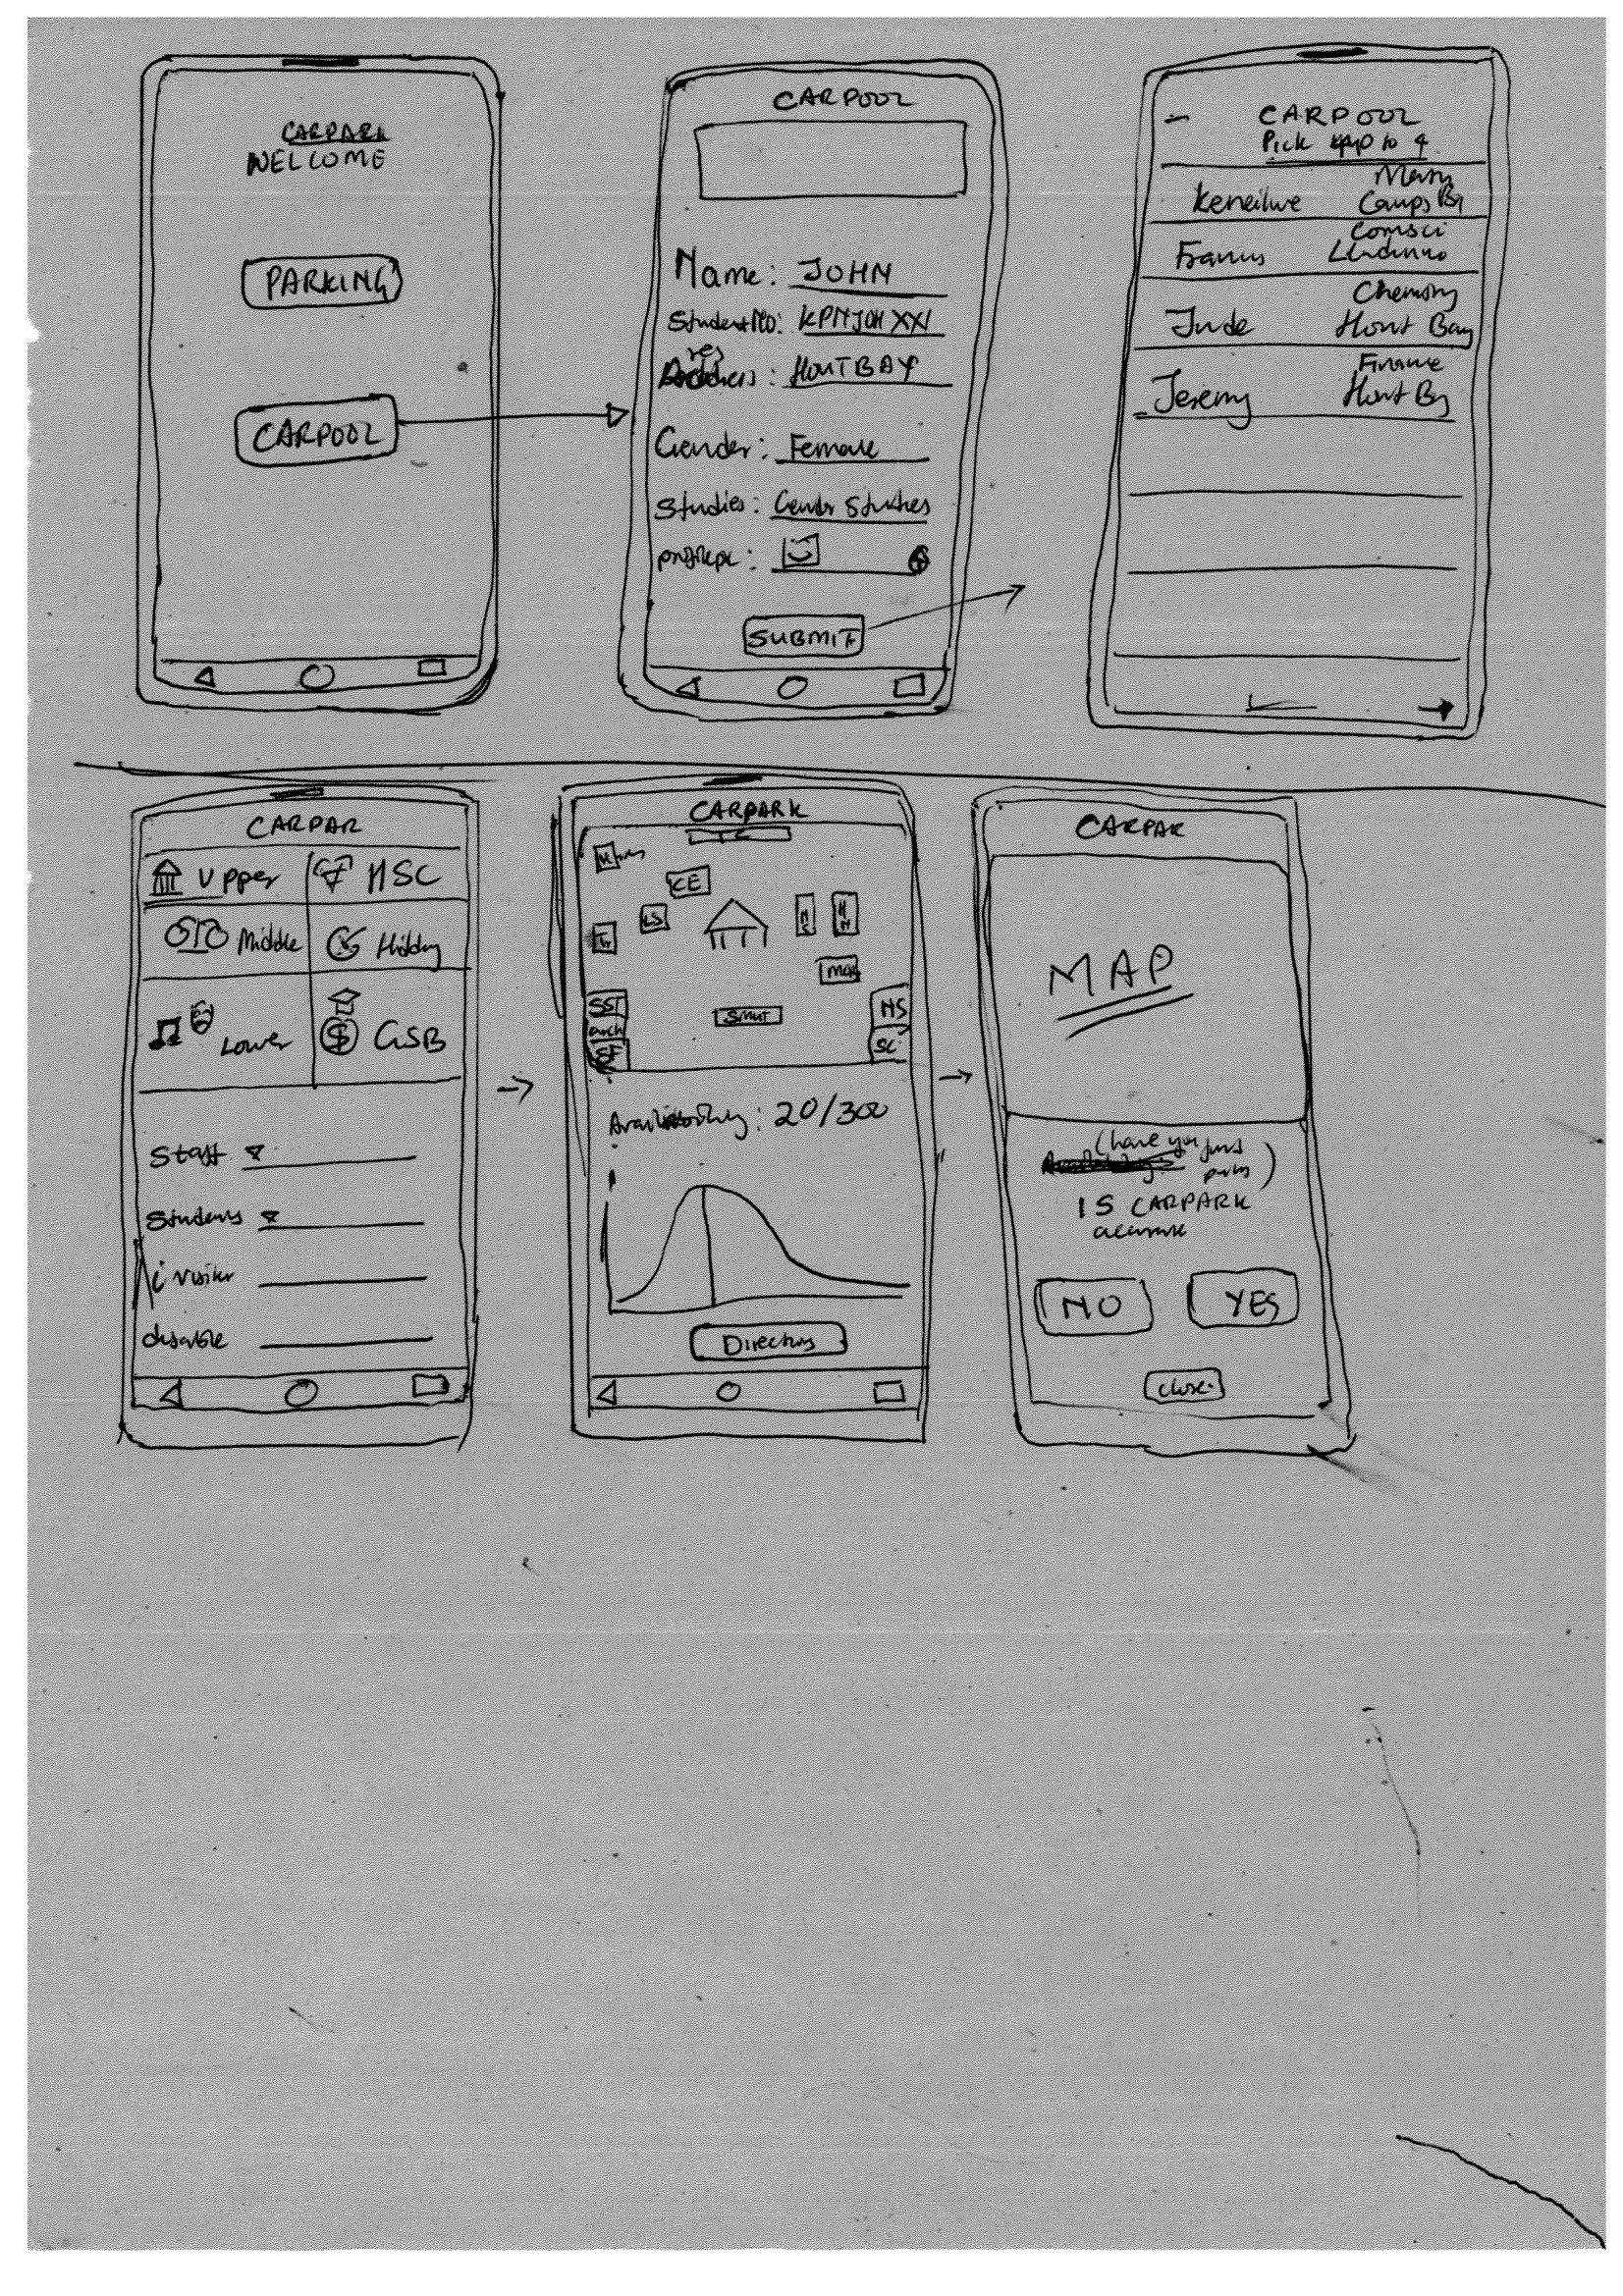 CARPARK
WELCOME
PARKING
CARPOOL
CARPOOL
Name: JOHN
Student No: KPMJOHXXX
res
: HOUTBAY
Gender: Female
Studies: Gender Studies
profilepic:
SUBMIT
CARPOOL
Pick up to 4
Keneilwe Camps By
Comsci
Francis Lludunno
Chemisry
Jude Hout Bay
Finance
Jeremy Hout By
CARPAR
Upper HSC
Middle Hidding
Lower $ GSB
Staff
Students
visitor
disable
CARPARK
KE
LS
SST
arch
SF
HS
SC
Availability: 20/300
Directions
CARPAR
MAP
(have you found
)
IS CARPARK
accurate
NO YES
close